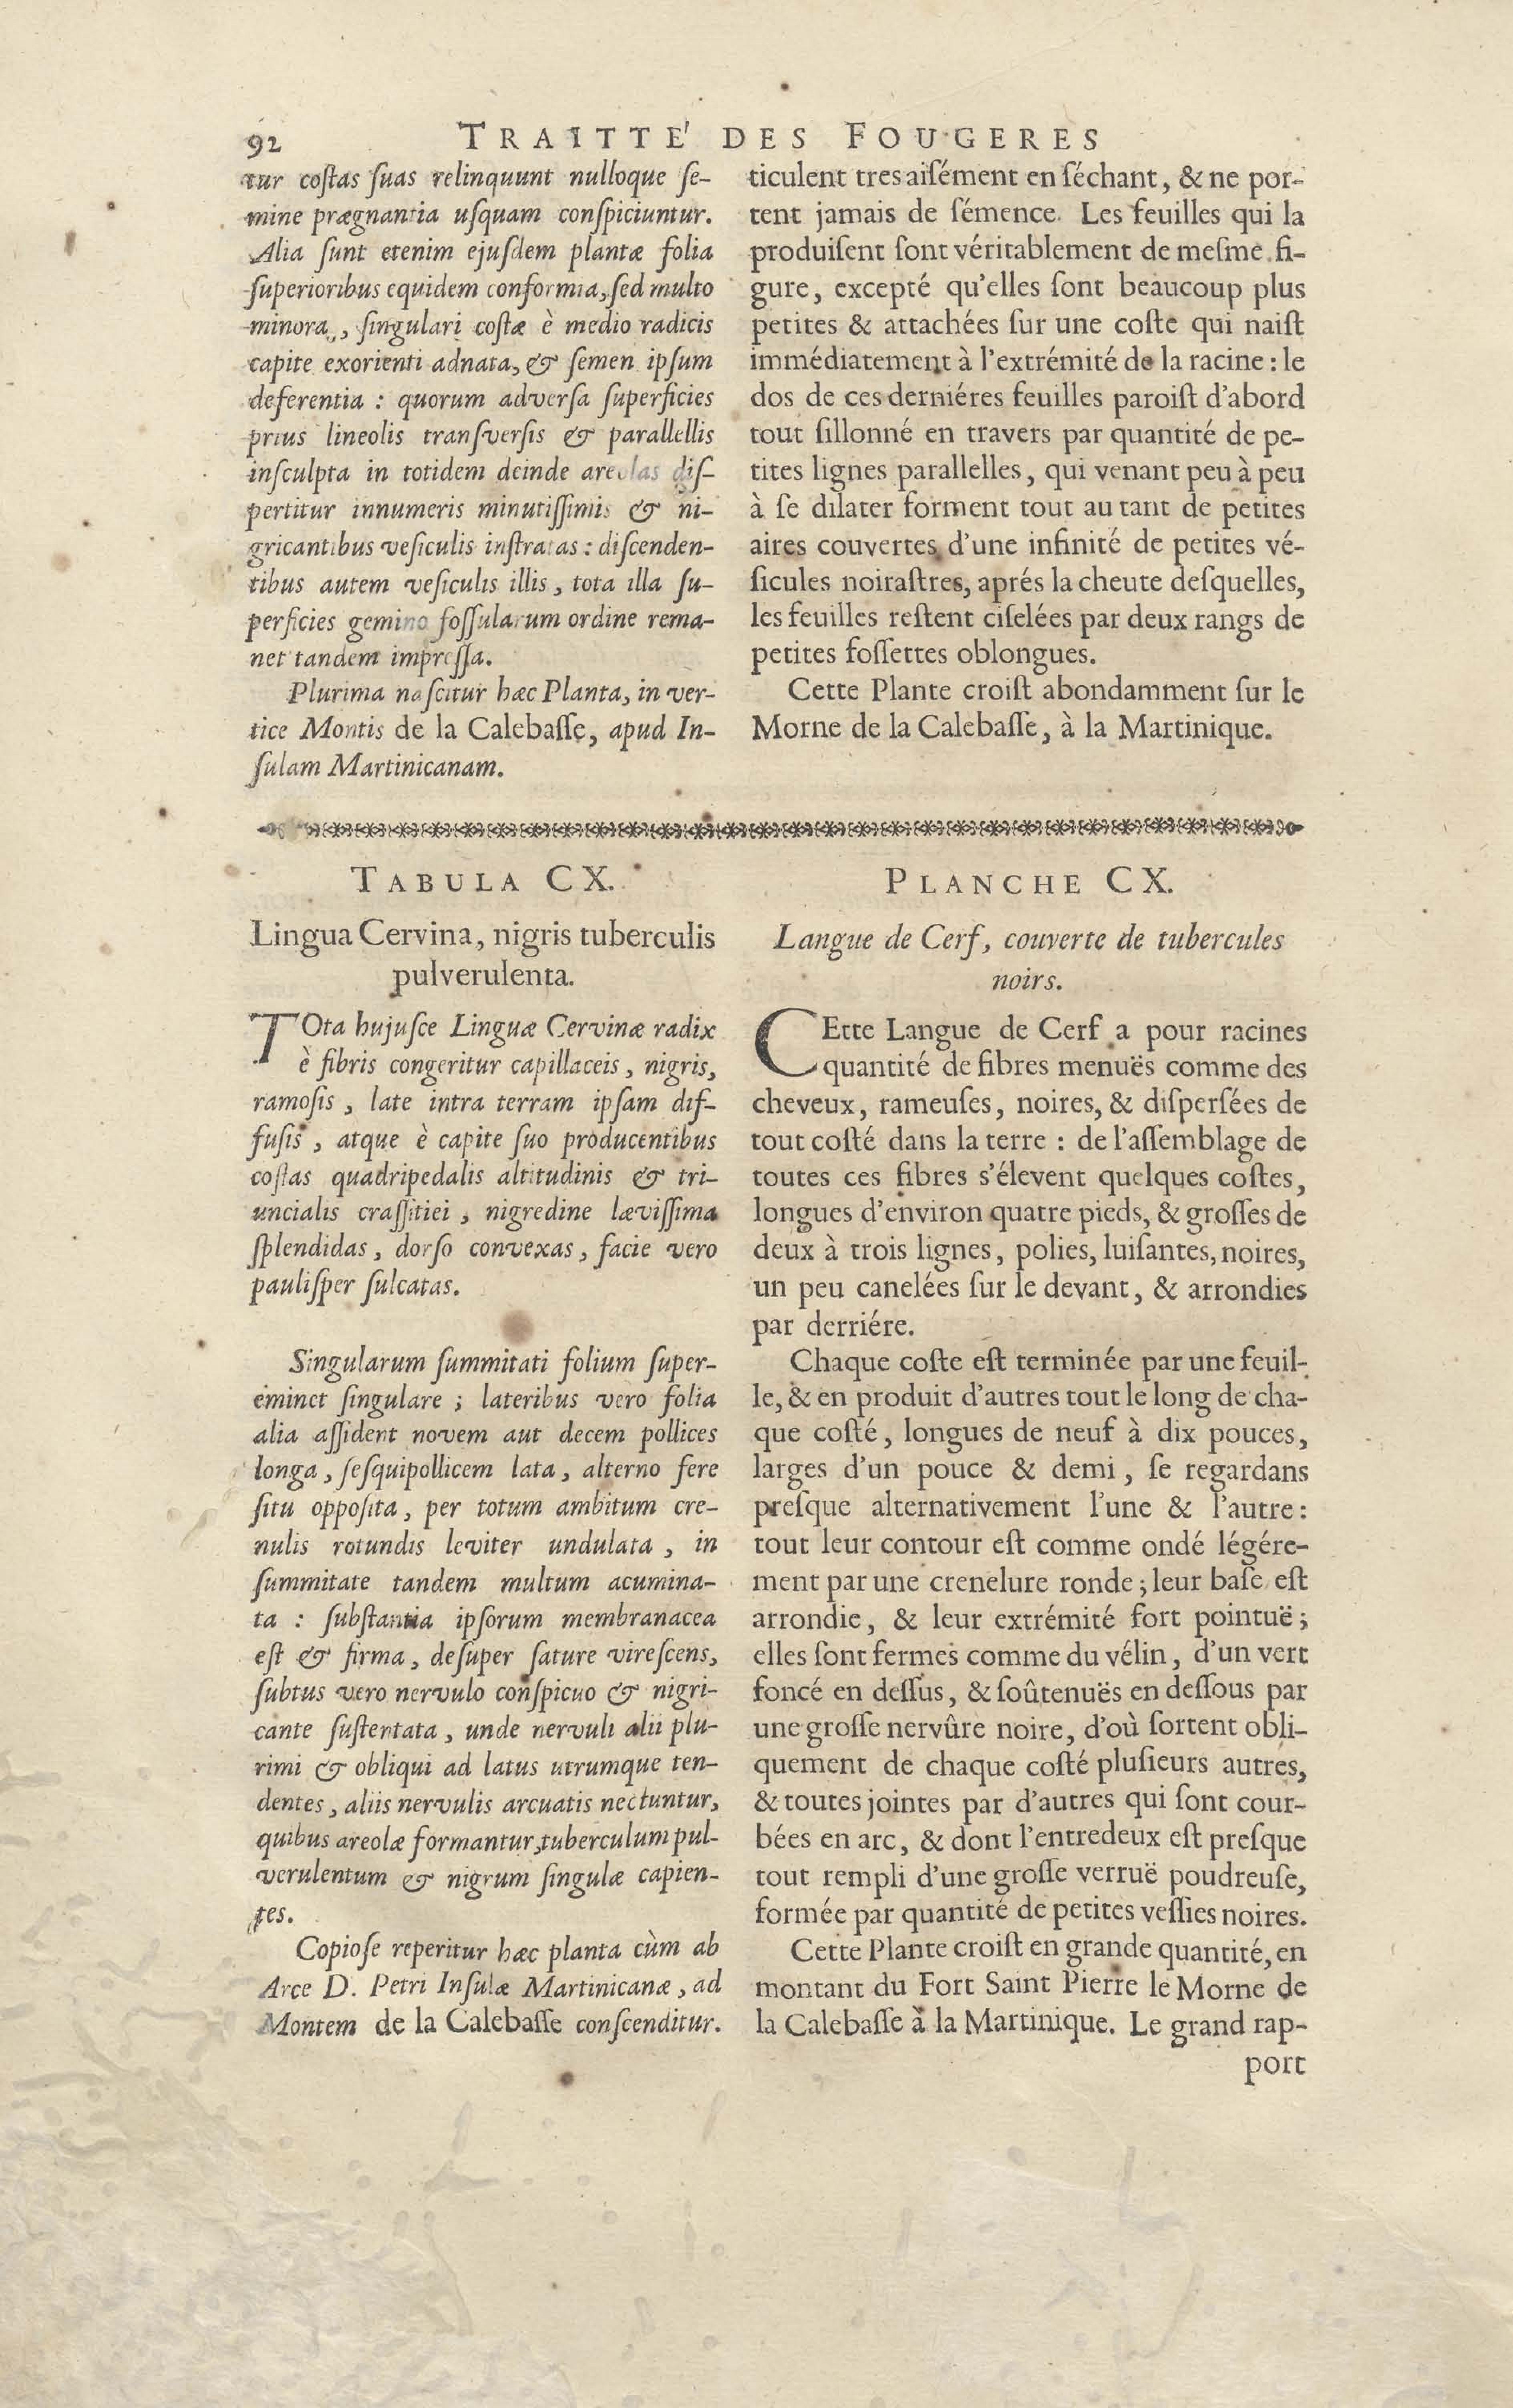 92 TRAITTE' DES FOUGERES
tur coſtas ſuas relinquunt nulloque ſe-
mine prægnantia uſquam conſpiciuntur.
Alia ſunt etenim ejuſdem plantæ folia
ſuperioribus equidem conformia, ſed multo
minora, ſingulari coſtæ è medio radicis
capite exorienti adnata, & ſemen ipſum
deferentia : quorum adverſa ſuperficies
prius lineolis tranſverſis & parallellis
inſculpta in totidem deinde areolas diſ-
pertitur innumeris minutiſſimis & ni-
gricantibus veſiculis inſtratas : diſcenden-
tibus autem veſiculis illis, tota illa ſu-
perficies gemino foſſularum ordine rema-
net tandem impreſſa.
Plurima naſcitur hæc Planta, in ver-
tice Montis de la Calebaſſe, apud In-
ſulam Martinicanam.
ticulent tres aiſément en ſéchant, & ne por-
tent jamais de ſémence. Les feuilles qui la
produiſent ſont véritablement de meſme fi-
gure, excepté qu'elles ſont beaucoup plus
petites & attachées ſur une coſte qui naiſt
immédiatement à l'extrémité de la racine : le
dos de ces derniéres feuilles paroiſt d'abord
tout ſillonné en travers par quantité de pe-
tites lignes parallelles, qui venant peu à peu
à ſe dilater forment tout au tant de petites
aires couvertes d'une infinité de petites vé-
ſicules noiraſtres, aprés la cheute deſquelles,
les feuilles reſtent ciſelées par deux rangs de
petites foſſettes oblongues.
Cette Plante croiſt abondamment ſur le
Morne de la Calebaſſe, à la Martinique.
TABULA CX.
Lingua Cervina, nigris tuberculis
pulverulenta.
TOta hujuſce Linguæ Cervinæ radix
è fibris congeritur capillaceis, nigris,
ramoſis, late intra terram ipſam dif-
fuſis, atque è capite ſuo producentibus
coſtas quadripedalis altitudinis & tri-
uncialis craſſitiei, nigredine læviſſima
ſplendidas, dorſo convexas, facie vero
pauliſper ſulcatas.
Singularum ſummitati folium ſuper-
eminet ſingulare ; lateribus vero folia
alia aſſident novem aut decem pollices
longa, ſeſquipollicem lata, alterno fere
ſitu oppoſita, per totum ambitum cre-
nulis rotundis leviter undulata, in
ſummitate tandem multum acumina-
ta : ſubſtantia ipſorum membranacea
eſt & firma, deſuper ſature vireſcens,
ſubtus vero nervulo conſpicuo & nigri-
cante ſuſtentata, unde nervuli alii plu-
rimi & obliqui ad latus utrumque ten-
dentes, aliis nervulis arcuatis nectuntur,
quibus areolæ formantur, tuberculum pul-
verulentum & nigrum ſingulæ capien-
tes.
Copioſe reperitur hæc planta cùm ab
Arce D. Petri Inſulæ Martinicanæ, ad
Montem de la Calebaſſe conſcenditur.
PLANCHE CX.
Langue de Cerf, couverte de tubercules
noirs.
CEtte Langue de Cerf a pour racines
quantité de fibres menuës comme des
cheveux, rameuſes, noires, & diſperſées de
tout coſté dans la terre : de l'aſſemblage de
toutes ces fibres s'élevent quelques coſtes,
longues d'environ quatre pieds, & groſſes de
deux à trois lignes, polies, luiſantes, noires,
un peu canelées ſur le devant, & arrondies
par derriére.
Chaque coſte eſt terminée par une feuil-
le, & en produit d'autres tout le long de cha-
que coſté, longues de neuf à dix pouces,
larges d'un pouce & demi, ſe regardans
preſque alternativement l'une & l'autre :
tout leur contour eſt comme ondé légére-
ment par une crenelure ronde ; leur baſe eſt
arrondie, & leur extrémité fort pointuë ;
elles ſont fermes comme du vélin, d'un vert
foncé en deſſus, & ſoûtenuës en deſſous par
une groſſe nervûre noire, d'où ſortent obli-
quement de chaque coſté pluſieurs autres,
& toutes jointes par d'autres qui ſont cour-
bées en arc, & dont l'entredeux eſt preſque
tout rempli d'une groſſe verruë poudreuſe,
formée par quantité de petites veſſies noires.
Cette Plante croiſt en grande quantité, en
montant du Fort Saint Pierre le Morne de
la Calebaſſe à la Martinique. Le grand rap-
port